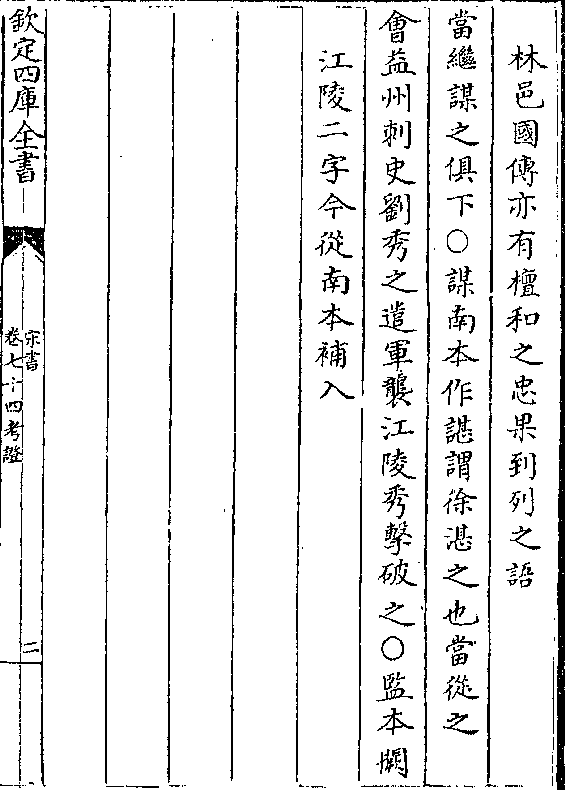 林邑國傳亦有檀和之忠果到列之語
當繼謀之俱下○謀南本作諶謂徐湛之也當從之
會益州刺史劉秀之遣軍襲江陵秀擊破之○監本闕
江陵二字今從南本補入
欽定四庫全書
宋書
卷七十四考證
二